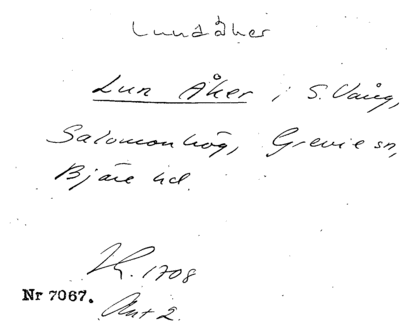 Lundåker
Lun Åker i S. Vång,
Salomonhög, Grevie sn,
Bjäre hd.
Lh. 1708
Nr 7067.
Akt 2.